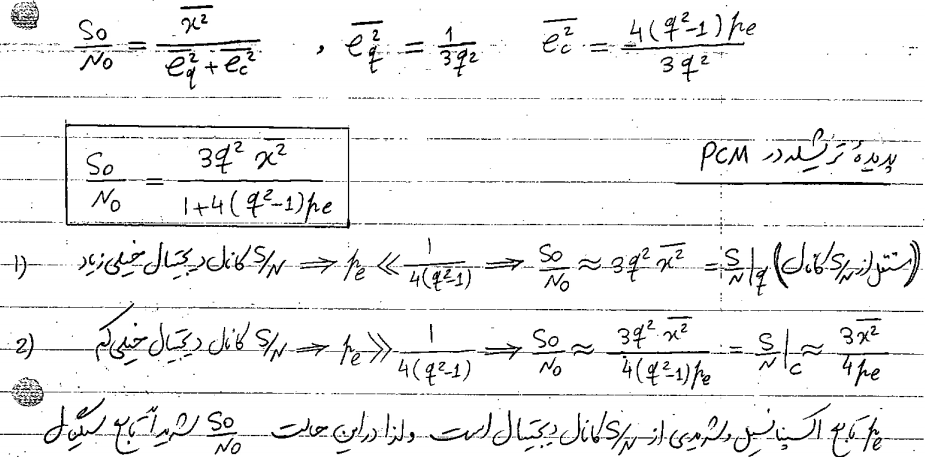 So/No = x̄² / (e̅q² + e̅c²) , e̅q² = 1/3q² e̅c² = 4(q²-1)Pe / 3q²
پدیدهٔ ترشلد در PCM
So/No = 3q² x̄² / 1+4(q²-1)Pe
1) S/N کانال دیجیتال خیلی زیاد ⇒ Pe ≪ 1/4(q²-1) ⇒ So/No ≈ 3q² x̄² = S/N|q (مستقل از S/N کانال)
2) S/N کانال دیجیتال خیلی کم ⇒ Pe ≫ 1/4(q²-1) ⇒ So/No ≈ 3q² x̄² / 4(q²-1)Pe = S/N|c ≈ 3x̄² / 4Pe
Pe تابع اکسپنانسیل و شدیدی از S/N کانال دیجیتال است ولذا در این حالت So/No شدیداً تابع سیگنال